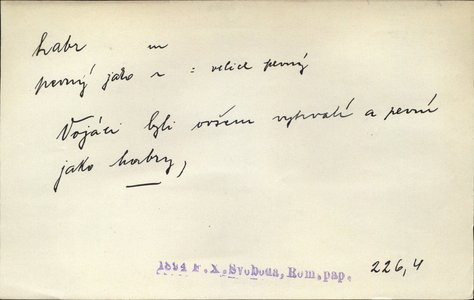 habr m
pevný jako h : velice pevný
Vojáci byli ovšem vytrvalí a pevní
jako habry,
1894 F.X.Svoboda, Rom.pap. 226,4